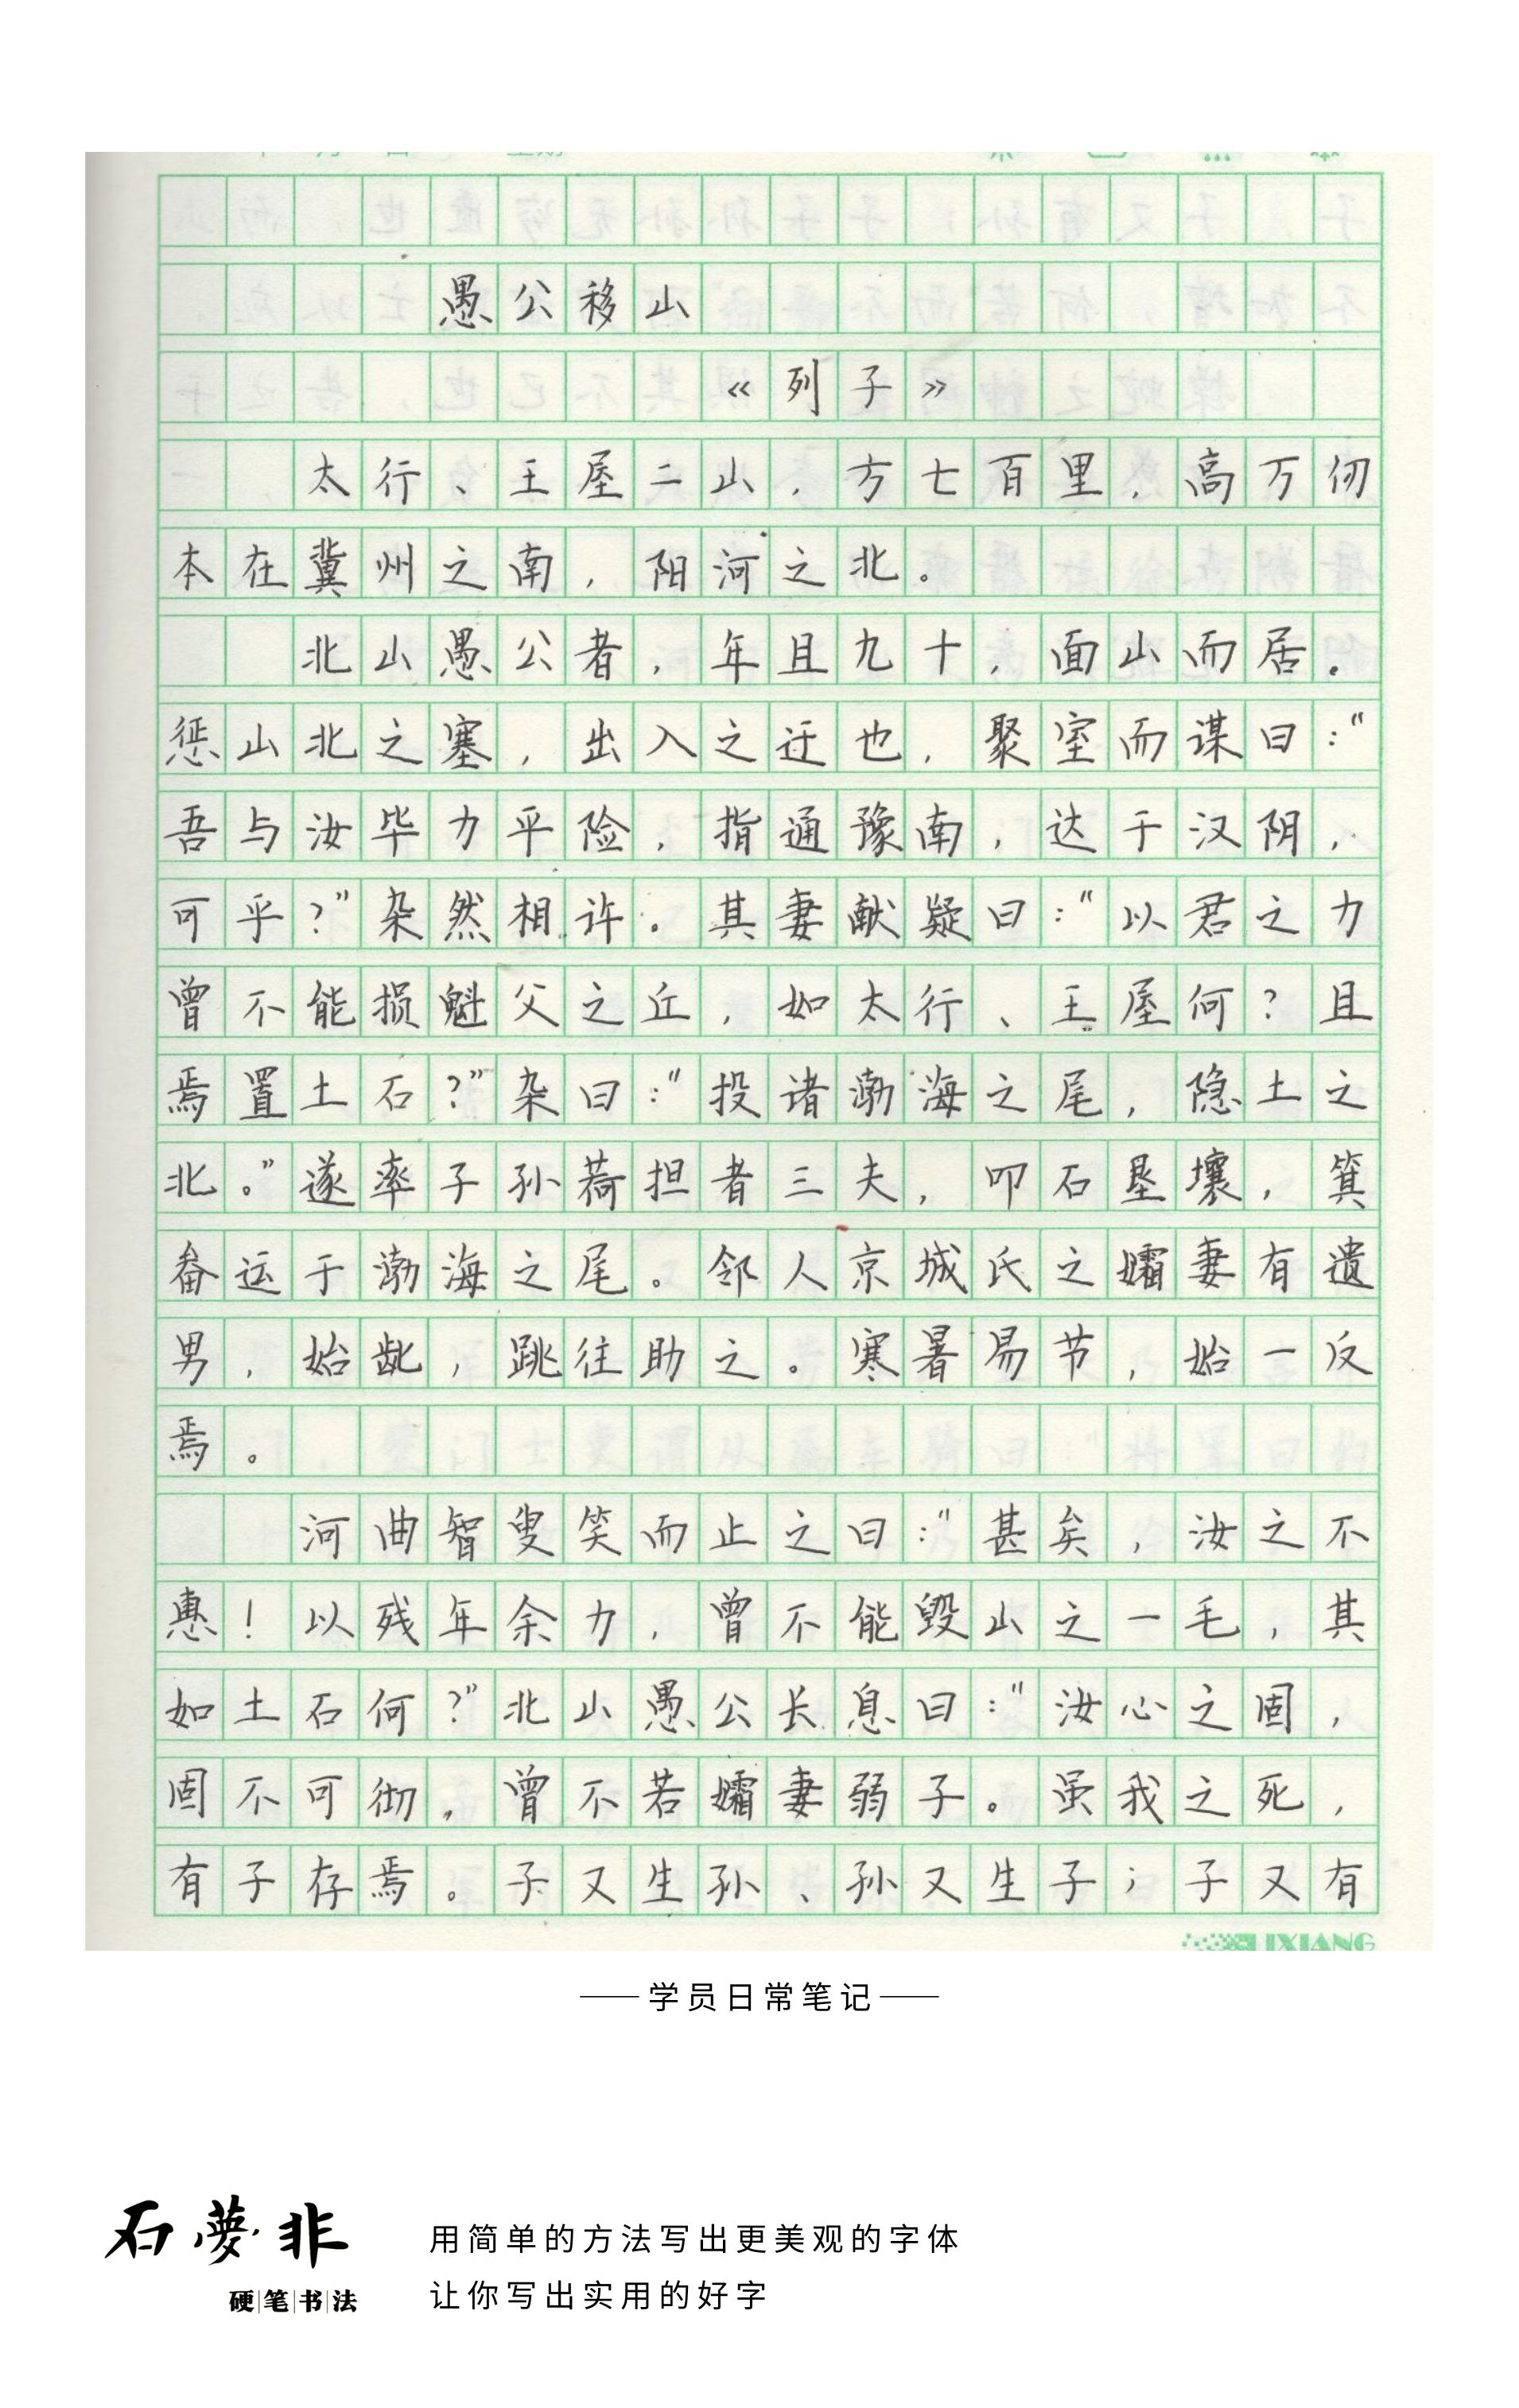 愚公移山
《列子》
太行、王屋二山，方七百里，高万仞
本在冀州之南，阳河之北。
北山愚公者，年且九十，面山而居。
惩山北之塞，出入之迂也，聚室而谋曰：“
吾与汝毕力平险，指通豫南，达于汉阴，
可乎？”杂然相许。其妻献疑曰：“以君之力
曾不能损魁父之丘，如太行、王屋何？且
焉置土石？”杂曰：“投诸渤海之尾，隐土之
北。”遂率子孙荷担者三夫，叩石垦壤，箕
畚运于渤海之尾。邻人京城氏之孀妻有遗
男，始龀，跳往助之。寒暑易节，始一反
焉。
河曲智叟笑而止之曰：“甚矣，汝之不
惠！以残年余力，曾不能毁山之一毛，其
如土石何？”北山愚公长息曰：“汝心之固，
固不可彻，曾不若孀妻弱子。虽我之死，
有子存焉。子又生孙、孙又生子；子又有
——学员日常笔记——
石夢非
硬笔书法
用简单的方法写出更美观的字体
让你写出实用的好字